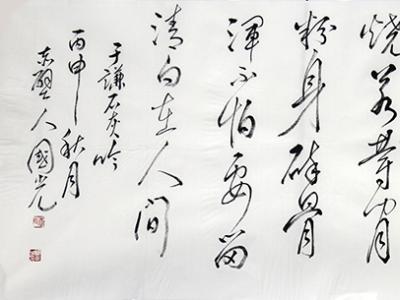 烧若等閒
粉身碎骨
渾不怕要留
清白在人間
于謙石灰吟
丙申秋月
東壁人國光